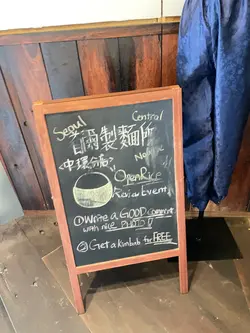 Seoul Central
製麵所
Noodle
中環分店
OpenRice
Event
① Write a GOOD comment
with nice PHOTO!!
② Get a kimbab for FREE